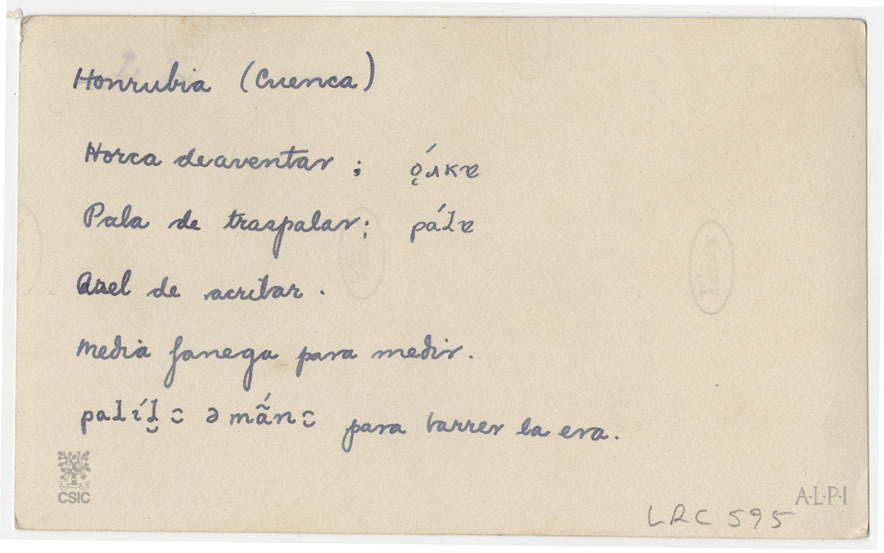 Honrubia (Cuenca)
Horca de aventar ; ǫ́ɹκɐ
Pala de traspalar; pálɐ
Arel de acribar.
Media fanega para medir.
para barrer la era.
CSIC
A·L·P·I
LRC 595